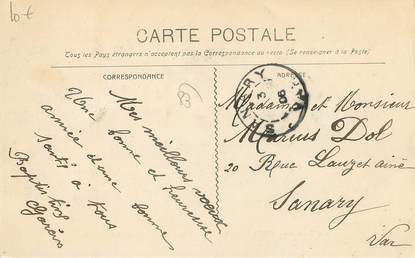 10+
CARTE POSTALE
Tous les Pays étrangers n'acceptent pas la Correspondance au recto (Se renseigner à la Poste)
CORRESPONDANCE
ADRESSE
Mes meilleurs voeux
bonne et heureuse
Une
année d'une bonne
santé à tous
Baptistin
SANARY
Madame et Monsieur
Marius Dol
20 Rue Lauzet ainé
Sanary
Var